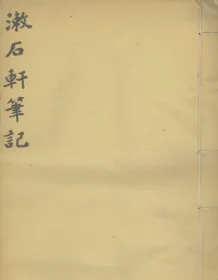 漱石軒筆記